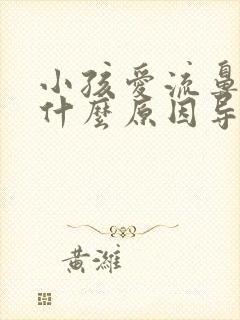 小孩愛流鼻
什麼原因导
黄濰